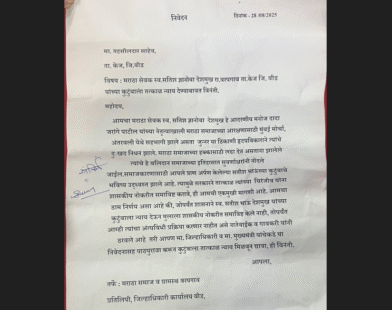 निवेदन
दिनांक - 28/08/2025
मा. तहसीलदार साहेब,
ता. केज, जि.बीड
विषय : मराठा सेवक स्व.सतिश ज्ञानोबा देशमुख रा.वरपगाव ता.केज जि. बीड
यांच्या कुटुंबाला तत्काळ न्याय देण्याबाबत विनंती.
महोदय,
आमचा मराठा सेवक स्व. सतिश ज्ञानोबा देशमुख हे आदरणीय मनोज दादा
जरांगे पाटील यांच्या नेतृत्वाखाली मराठा समाजाच्या आरक्षणासाठी मुंबई मोर्चा,
अंतरवली येथे सहभागी झाले असता जुन्नर या ठिकाणी हृदयविकाराने त्यांचे
दुःखद निधन झाले. मराठा समाजाच्या हक्कासाठी लढा देत असताना झालेले
त्यांचे हे बलिदान समाजाच्या इतिहासात सुवर्णाक्षरांनी नोंदले
जाईल.समाजकारणासाठी आपले प्राण अर्पण केलेल्या सतीश भाऊंच्या कुटुंबाचे
भविष्य उद्ध्वस्त झाले आहे. त्यामुळे सरकारने तात्काळ त्यांच्या चिरंजीव यांना
शासकीय नोकरीत समाविष्ट करावे, ही आमची एकमुखी मागणी आहे. आमचा
ठाम निर्णय असा आहे की, जोपर्यंत शासनाने स्व. सतीश भाऊ देशमुख यांच्या
कुटुंबाला न्याय देऊन मुलाला शासकीय नोकरीत समाविष्ट केले नाही, तोपर्यंत
आम्ही त्यांचा अंत्यविधी प्रक्रिया करणार नाहीत असे नातेवाईक व गावकरी यांनी
ठरवले आहे. तरी आपण मा. जिल्हाधिकारी व मा. मुख्यमंत्री यांचेकडे या
निवेदनासह पाठपुरावा करून कुटुंबाला तात्काळ न्याय मिळवून द्यावा, ही विनंती.
आपला,
तर्फे : मराठा समाज व ग्रामस्थ वरपगाव
प्रतिलिपी, जिल्हाधिकारी कार्यालय बीड,